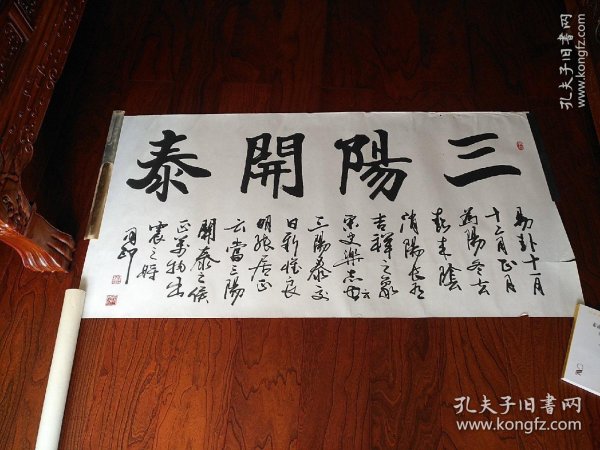 三陽開泰
易卦十一月
十二月正月
為陽冬去
春來陰
消陽長有
吉祥之象
宋史樂志云
三陽泰交
日新惟良
明張居正
云當三陽
開泰之候
正萬物出
震之時
孔夫子旧书网
www.kongfz.com
孔夫子旧书网
www.kongfz.com